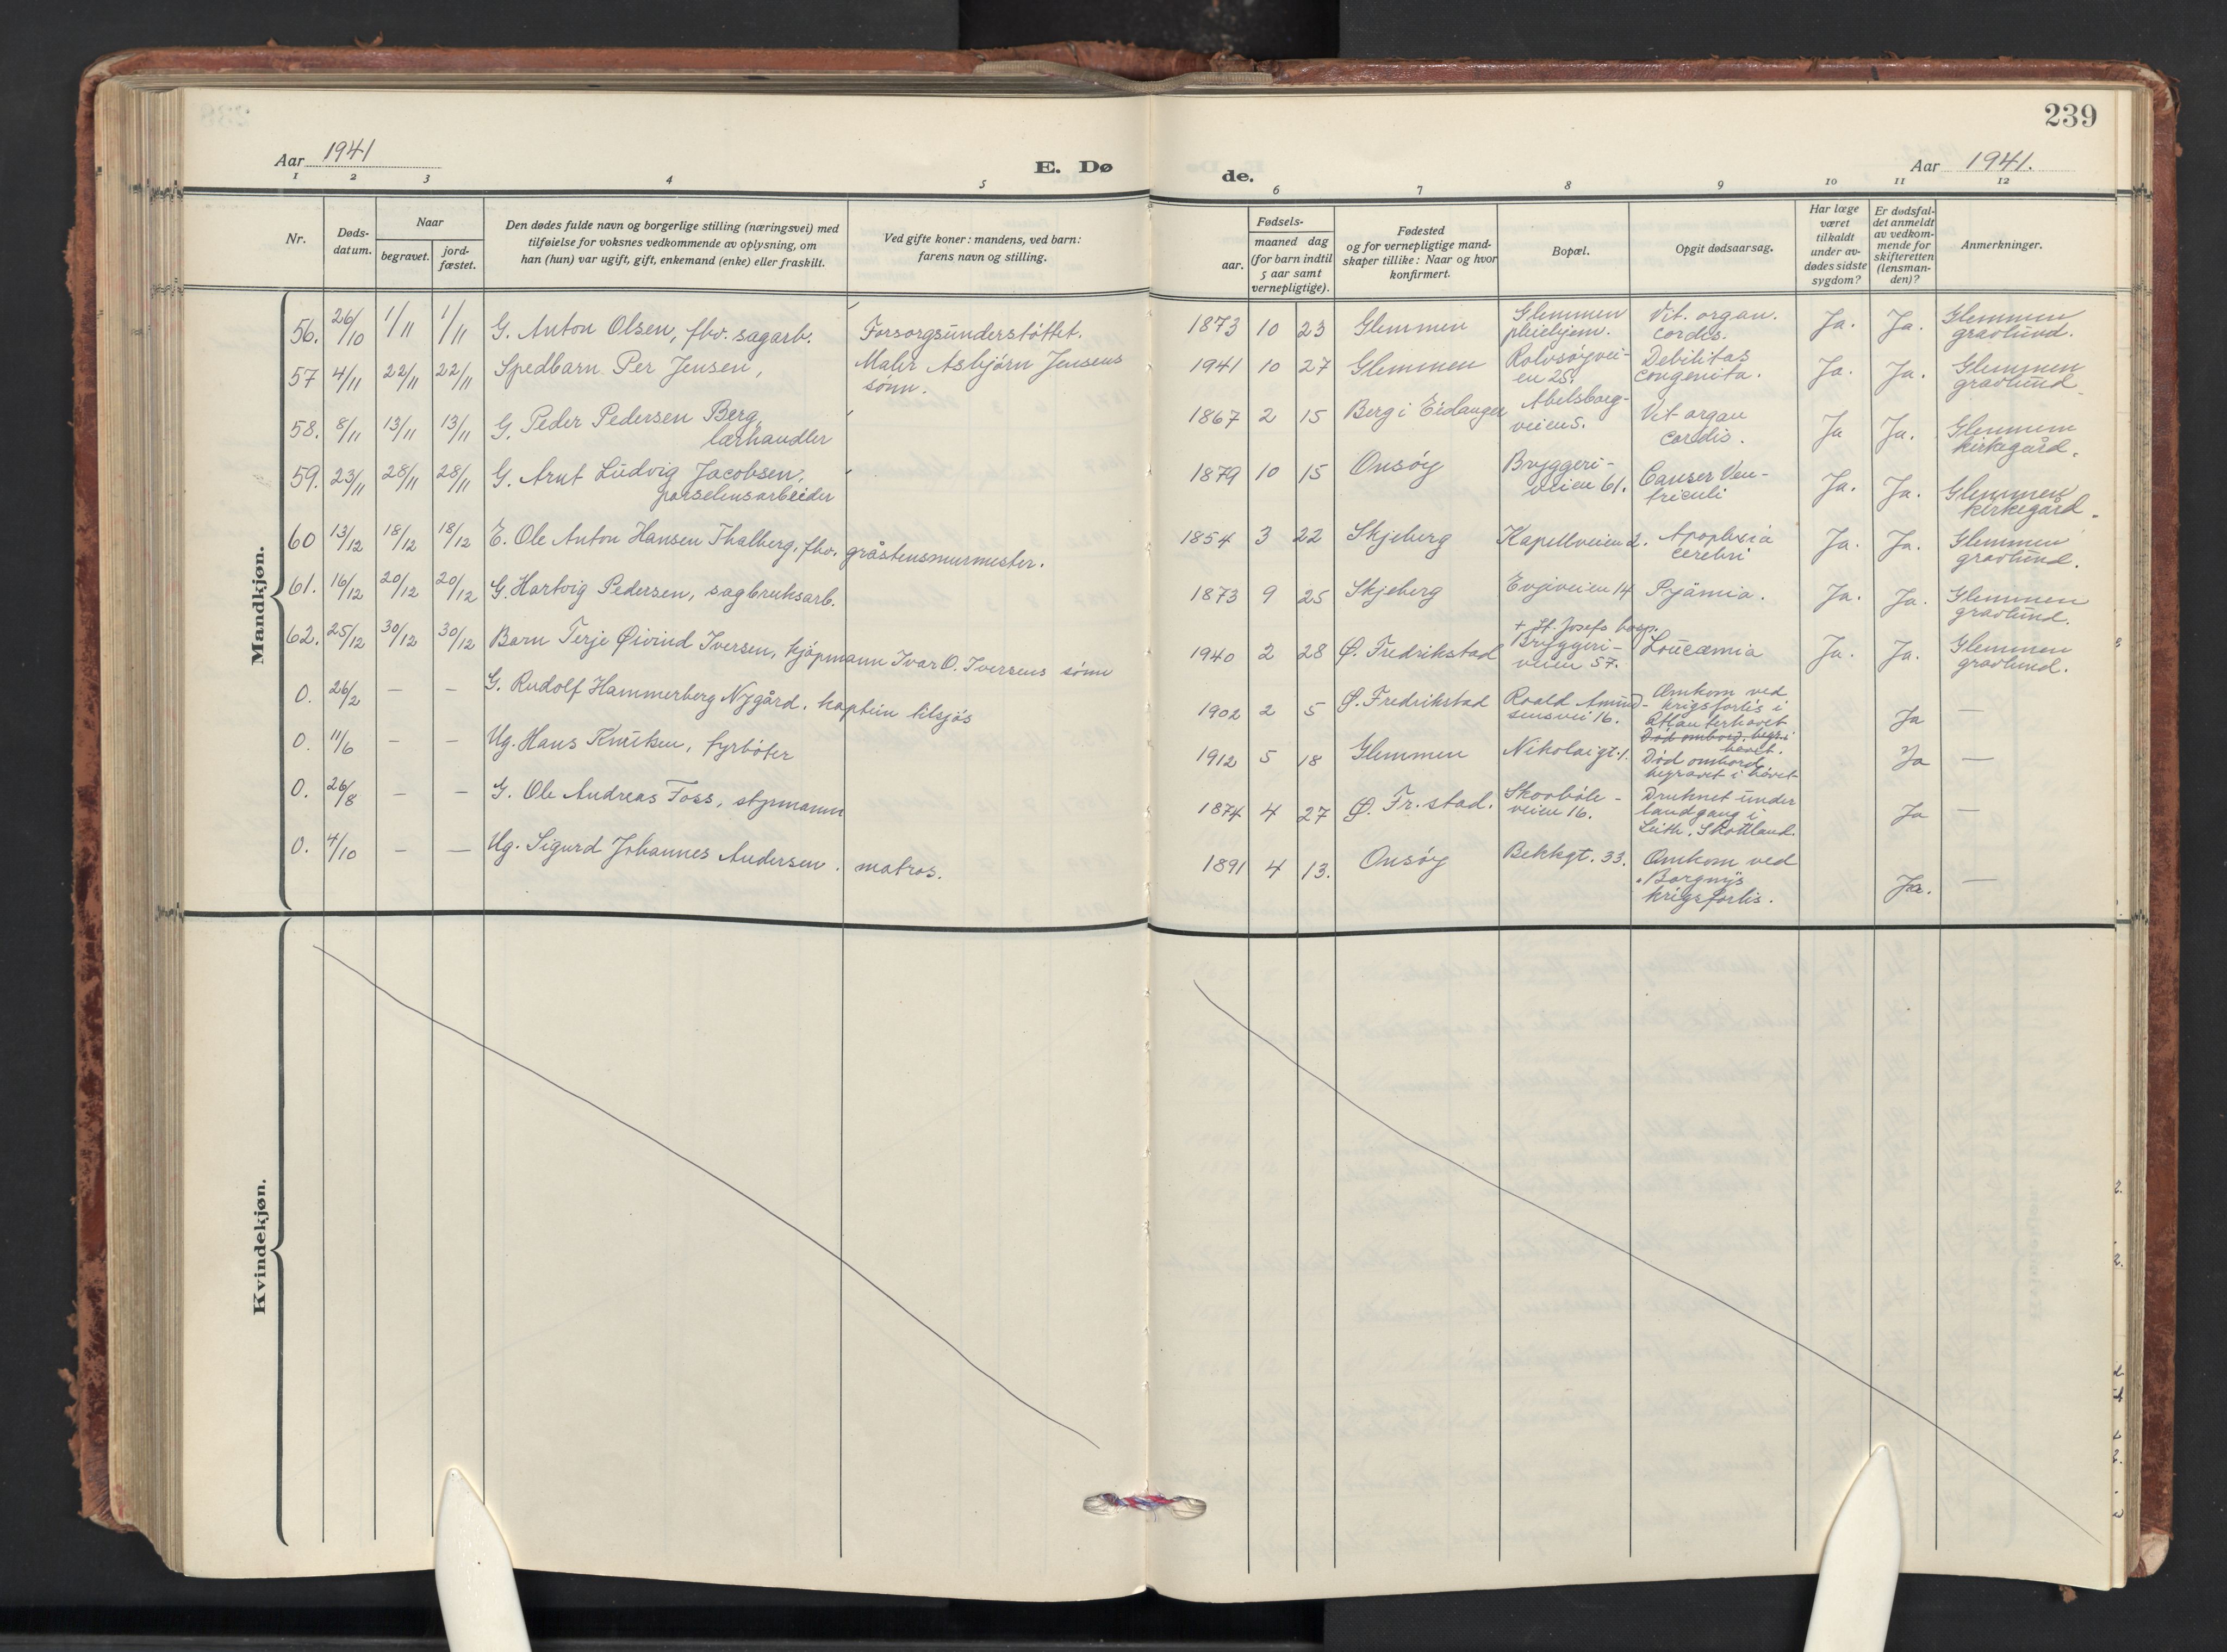 239
Aar 1941
E. Dø
de.
Aar 1941.
1 2 3 4 5
6 7 8 9 10 11 12
Nr.
Døds-
datum.
Naar
begravet.
jord-
fæstet.
Den dødes fulde navn og borgerlige stilling (næringsvei) med
tilføielse for voksnes vedkommende av oplysning, om
han (hun) var ugift, gift, enkemand (enke) eller fraskilt.
Ved gifte koner: mandens, ved barn:
farens navn og stilling.
Fødsels-
aar.
maaned dag
(for barn indtil
5 aar samt
vernepligtige).
Fødested
og for vernepligtige mand-
skaper tillike: Naar og hvor
konfirmert.
Bopæl.
Opgit dødsaarsag.
Har læge
været
tilkaldt
under av-
dødes sidste
sygdom?
Er dødsfal-
det anmeldt
av vedkom-
mende for
skifteretten
(lensman-
den)?
Anmerkninger.
Mandkjøn.
56. 26/10 1/11 1/11 G. Anton Olsen, fhv. sagarb. Forsorgsunderstøttet. 1873 10 23 Glemmen Glemmen
pleiehjem. Vit. organ.
cordis. Ja. Ja. Glemmen
gravlund.
57 4/11 22/11 22/11 Spedbarn Per Jensen, Maler Asbjørn Jensens
sønn. 1941 10 27 Glemmen Rolvsøyvei-
en 25. Debilitas
congenita. Ja. Ja. Glemmen
gravlund.
58. 8/11 13/11 13/11 G. Peder Pedersen Berg,
lærhandler 1867 2 15 Berg i Eidanger Abelsborg-
veien 5. Vit organ
cordis. Ja Ja. Glemmen
kirkegård.
59. 23/11 28/11 28/11 G. Arnt Ludvig Jacobsen,
porselensarbeider 1879 10 15 Onsøy Bryggeri-
veien 61. Canser Ven-
triculi Ja. Ja. Glemmen
kirkegård.
60 13/12 18/12 18/12 E. Ole Anton Hansen Thalberg, fhv. gråstensmurmester. 1854 3 22 Skjeberg Kapellveien 2. Apoplexia
cerebri Ja. Ja. Glemmen
gravlund.
61. 16/12 20/12 20/12 G. Hartvig Pedersen, sagbruksarb. 1873 9 25 Skjeberg Evjeveien 14 Pyämia. Ja. Ja. Glemmen
gravlund.
62. 25/12 30/12 30/12 Barn Terje Øivind Iversen, kjøpmann Ivar O. Iversens sønn 1940 2 28 Ø. Fredrikstad + St. Josefs hosp.
Bryggeri-
veien 57. Loucæmia Ja. Ja. Glemmen
gravlund.
0. 26/2 — — G. Rudolf Hammerberg Nygård, kaptein tilsjøs 1902 2 5 Ø. Fredrikstad Roald Amund-
sensvei 16. Omkom ved
krigsforlis i
Atlanterhavet Ja —
0. 11/6 — — Ug. Hans Knutsen, fyrbøter 1912 5 18 Glemmen Nikolaigt. 1. Død ombord, begr. i
havet.
Død ombord,
begravet i havet Ja —
0. 26/8 — — G. Ole Andreas Foss, styrmann 1874 4 27 Ø. Fr.stad. Skovbøle-
veien 16. Druknet under
landgang i
Leith, Skottland. Ja —
0. 4/10 — — Ug. Sigurd Johannes Andersen, matros. 1891 4 13. Onsøy Bekkgt. 33. Omkom ved
"Borgnys
krigsforlis. Ja. —
Kvindekjøn.